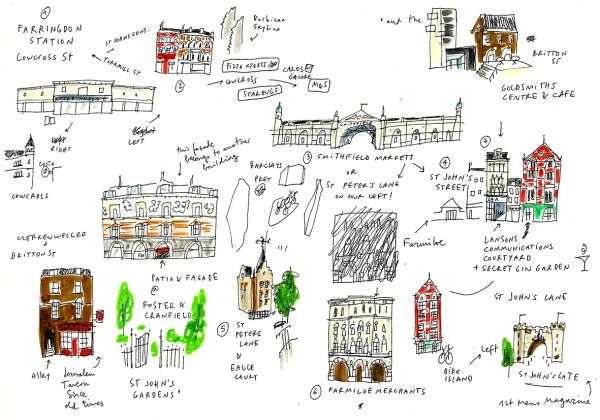 1
FARRINGDON
STATION
COWCROSS ST
ST JOHNS CONS.
TURNMILL ST
2
Barbican
Skyline
PIZZA XPRESS
COWCROSS
STARBUGS
CARDS
GALORE
M&S
"and the
BRITTON
ST
GOLDSMITHS
CENTRE & CAFE
RIGHT
LEFT
COSTA
COWCROSS
this facade
belongs to another
building
3 SMITHFIELD MARKETS
OR
ST PETER'S LANE
ON YOUR LEFT!
BARCLAYS
PRET
4
ST JOHN'S
STREET
7
Farmiloe
LANSONS
COMMUNICATIONS
COURTYARD
+ SECRET GIN GARDEN
CLERKENWELL RD
+
BRITTON ST
PATIO & FACADE
@
FOSTER &
CRANFIELD
5
ST
PETERS
LANE
&
EAGLE
COURT
ST JOHN'S LANE
Alley
Jerusalem
Tavern
Since
old times
ST JOHN'S
GARDENS
6 FARMILOE MERCHANTS
BIKE
ISLAND
Left
ST JOHN'S GATE
1st Mens Magazine